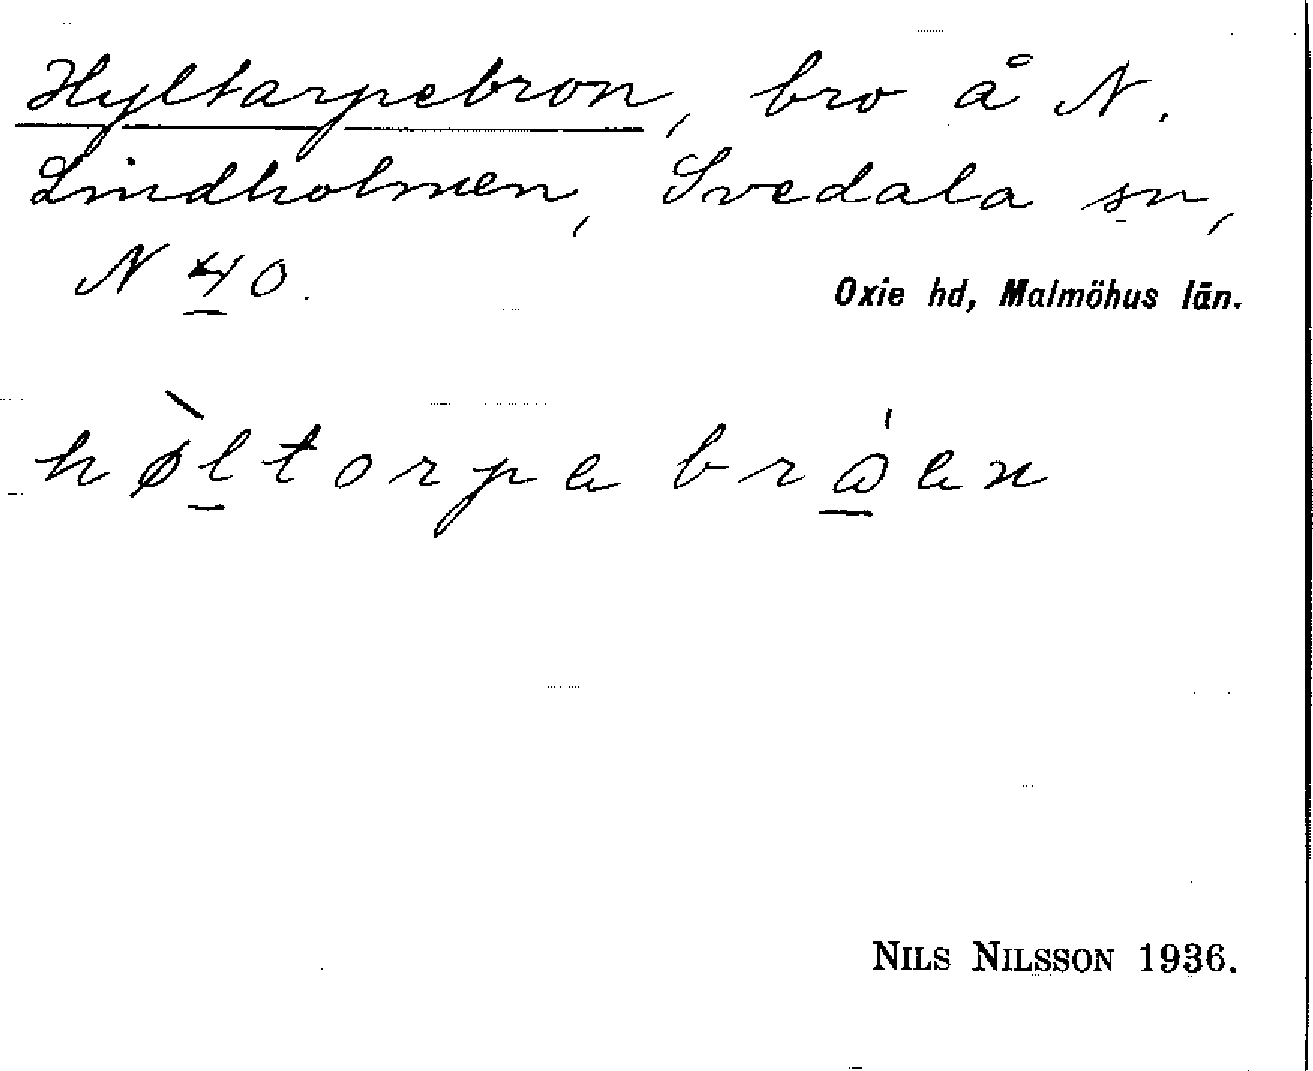 Hyltarpebron, bro å N.
Lindholmen, Svedala sn,
N 40.
Oxie hd, Malmöhus län.
hø̀ltorpa bråen
NILS NILSSON 1936.